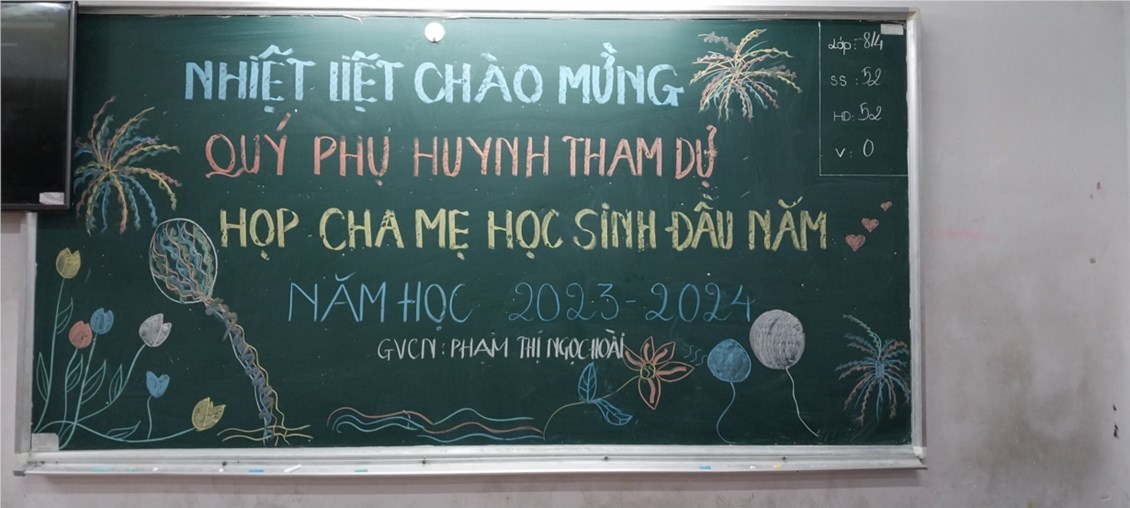 NHIỆT LIỆT CHÀO MỪNG
QUÝ PHỤ HUYNH THAM DỰ
HỌP CHA MẸ HỌC SINH ĐẦU NĂM
NĂM HỌC 2023-2024
GVCN: PHẠM THỊ NGỌC HOÀI
Lớp: 8/4
SS: 52
HD: 52
V: 0